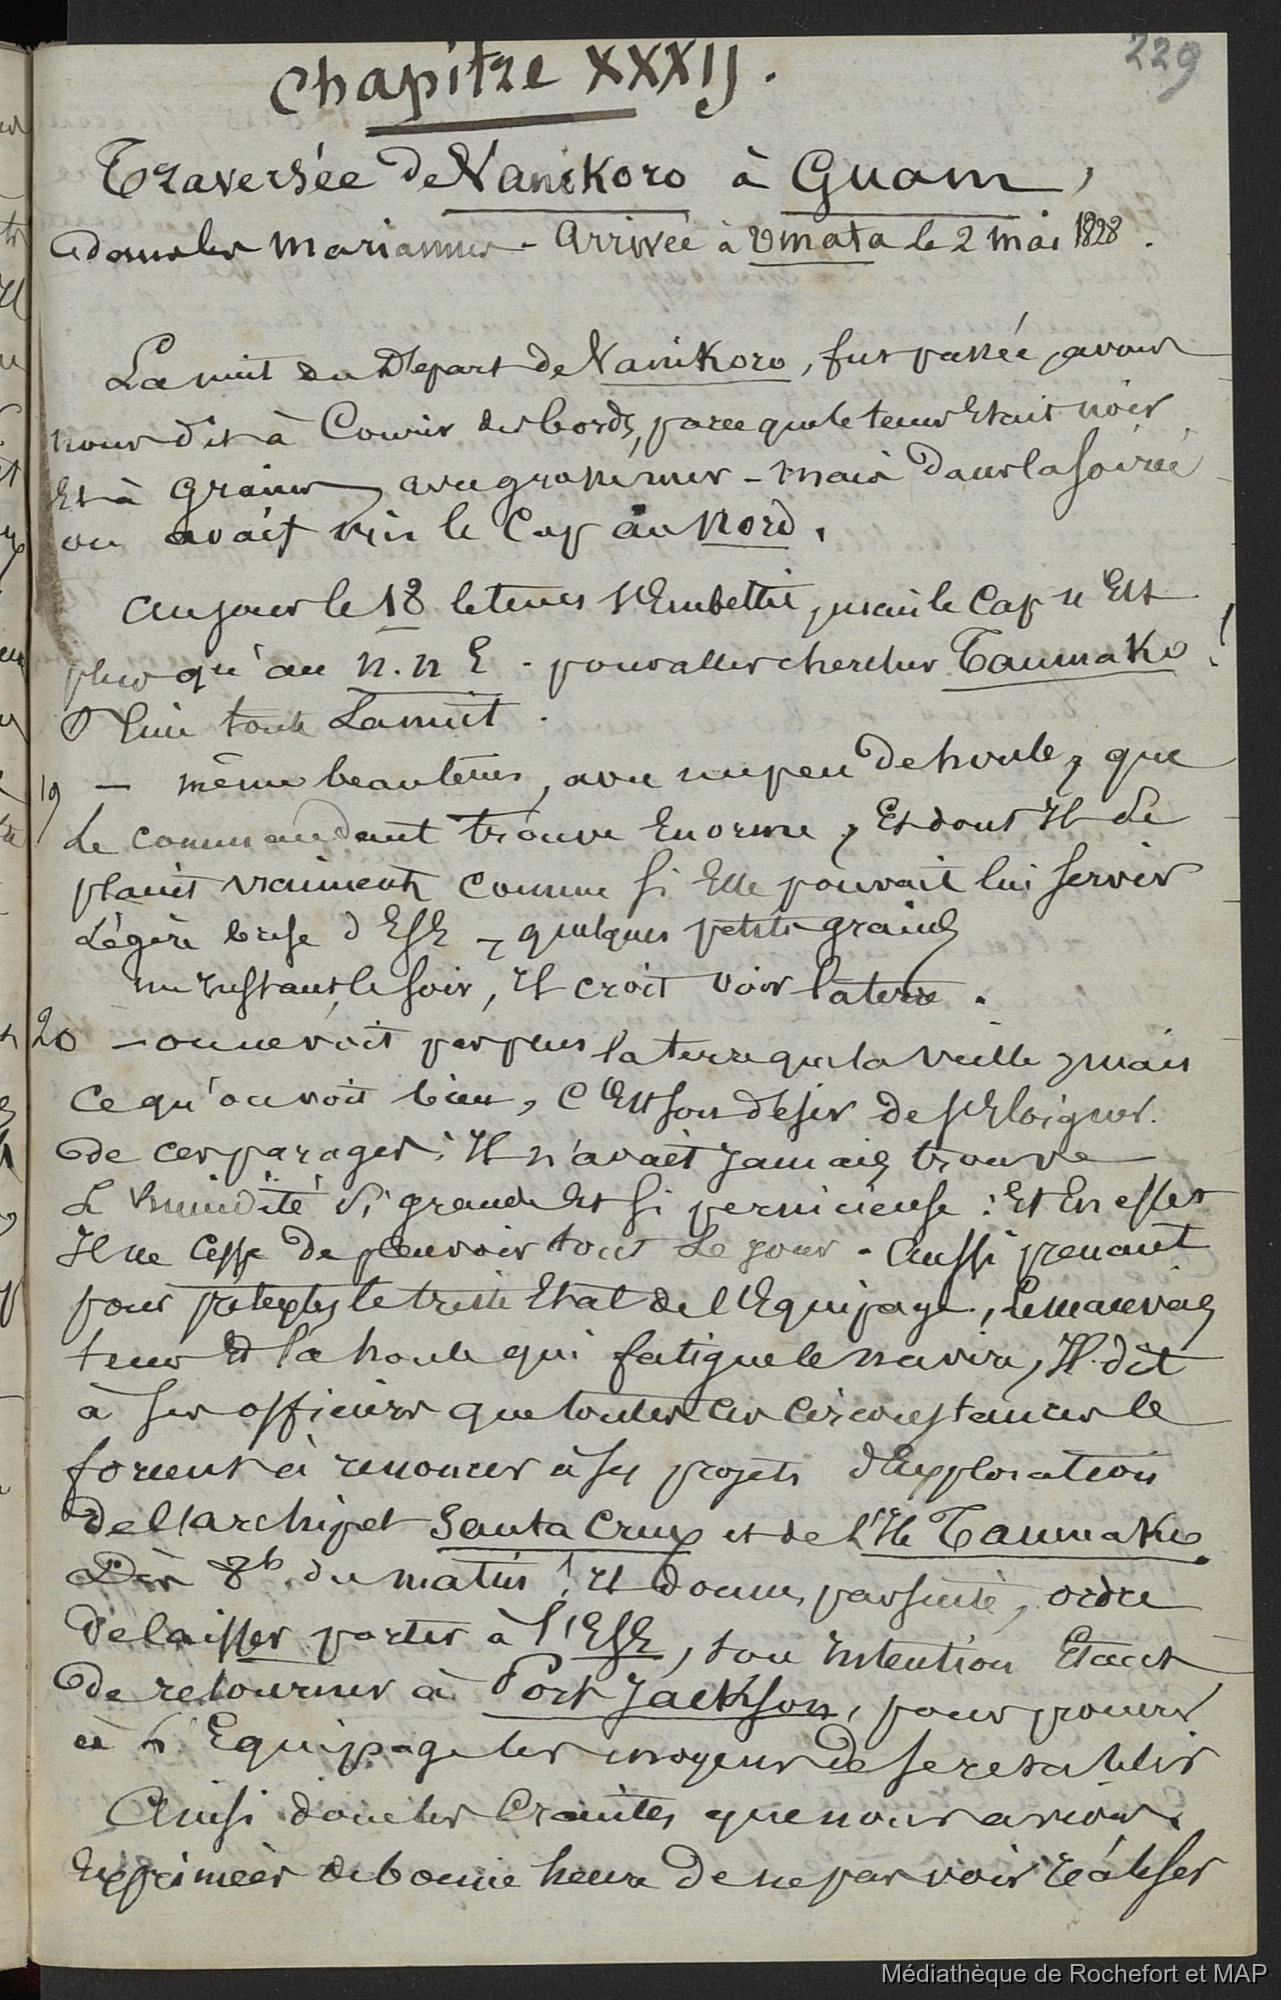 229
Chapitre XXXIJ.
Traversée de Vanikoro à Guam,
dans les mariannes - Arrivée à Umata le 2 mai 1828.
La nuit du Départ de Vanikoro, fut passée, avons
nous dit à Courir des bords, parce que le tems Etait noir
Et à Grains, avec grosse mer - mais dans la soirée
on avait mis le Cap au Nord.
Au jour le 18 le tems s'Embellit, mais le Cap n'Est
plus qu'au N. N E - pour aller chercher Taumako !
Pluie toute La nuit.
19 - même beau tems, avec un peu de houle, que
le commandant trouve Enorme, Et dont Il se
plaint vraiment, comme si Elle pouvait lui servir
Légère brise d'ESE, quelques petits grains
un Instant, le soir, Il croit voir la terre.
20 - on ne voit pas plus la terre que la veille, mais
ce qu'on voit bien, c'Est son désir de s'Eloigner
de ces parages. Il n'avait Jamais trouvé
L'humidité si grande Et si pernicieuse : Et En effet
Il ne Cesse de pleuvoir tout Le jour - Aussi prenant
pour prétexte le triste Etat de l'Equipage, Le mauvais
tems Et la houle qui fatigue le navire, Il dit
à ses officiers que toutes ces circonstances le
forcent à renoncer à ses projets d'Exploration
de l'archipel Santa Crux et de l'Ile Taumako.
Dès 8h. du matin ! Il donne, par suite, ordre
de laisser porter à l'ESE, son Intention Etant
de retourner à Port Jackson, pour procurer
à l'Equipage les moyens de se rétablir
Ainsi donc les Craintes que nous avions
Exprimées de bonne heure de ne pas voir réaliser
Médiathèque de Rochefort et MAP